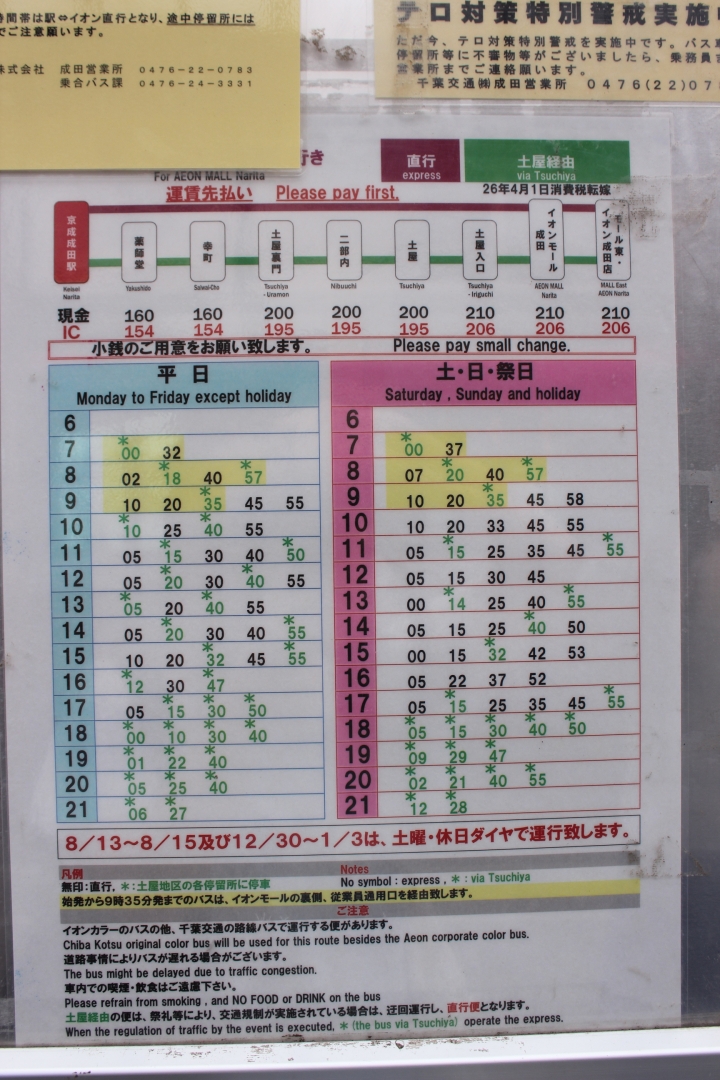 時間帯は駅⇔イオン直行となり、途中停留所には
でご注意願います。
株式会社 成田営業所 0476-22-0783
乗合バス課 0476-24-3331
テロ対策特別警戒実施
ただ今、テロ対策特別警戒を実施中です。バス車
停留所等に不審物等がございましたら、乗務員ま
営業所までご連絡願います。
千葉交通㈱成田営業所 0476(22)07
行き
For AEON MALL Narita
直行
express
土屋経由
via Tsuchiya
運賃先払い Please pay first.
26年4月1日消費税転嫁
京成成田駅 薬師堂 幸町 土屋裏門 二部内 土屋 土屋入口 イオンモール成田 モール東・イオン成田店
Keisei Narita Yakushido Saiwai-Cho Tsuchiya-Uramon Nibuuchi Tsuchiya Tsuchiya-Iriguchi AEON MALL Narita MALL East AEON Narita
現金 160 160 200 200 200 210 210 210
IC 154 154 195 195 195 206 206 206
小銭のご用意をお願い致します。 Please pay small change.
平日
Monday to Friday except holiday
6
7 *00 32
8 02 *18 40 *57
9 10 20 *35 45 55
10 *10 25 *40 55
11 05 *15 30 40 *50
12 05 *20 30 *40 55
13 *05 20 *40 55
14 05 *20 30 40 *55
15 10 20 *32 45 *55
16 *12 30 *47
17 05 *15 *30 *50
18 *00 *10 *30 *40
19 *01 *22 *40
20 *05 *25 *40
21 *06 *27
土・日・祭日
Saturday , Sunday and holiday
6
7 *00 37
8 07 *20 40 *57
9 10 20 *35 45 58
10 10 20 33 45 55
11 05 *15 25 35 45 *55
12 05 15 30 45
13 00 *14 25 40 *55
14 05 15 25 *40 50
15 00 15 *32 42 53
16 05 22 37 52
17 05 *15 25 35 45 *55
18 *05 *15 *30 *40 *50
19 *09 *29 *47
20 *02 *21 *40 *55
21 *12 *28
8/13～8/15及び12/30～1/3は、土曜・休日ダイヤで運行致します。
凡例 Notes
無印:直行, *:土屋地区の各停留所に停車 No symbol : express , * : via Tsuchiya
始発から9時35分発までのバスは、イオンモールの裏側、従業員通用口を経由致します。
ご注意
イオンカラーのバスの他、千葉交通の路線バスで運行する便があります。
Chiba Kotsu original color bus will be used for this route besides the Aeon corporate color bus.
道路事情によりバスが遅れる場合がございます。
The bus might be delayed due to traffic congestion.
車内での喫煙・飲食はご遠慮下さい。
Please refrain from smoking , and NO FOOD or DRINK on the bus
土屋経由の便は、祭礼等により、交通規制が実施されている場合は、迂回運行し、直行便となります。
When the regulation of traffic by the event is executed, * (the bus via Tsuchiya) operate the express.